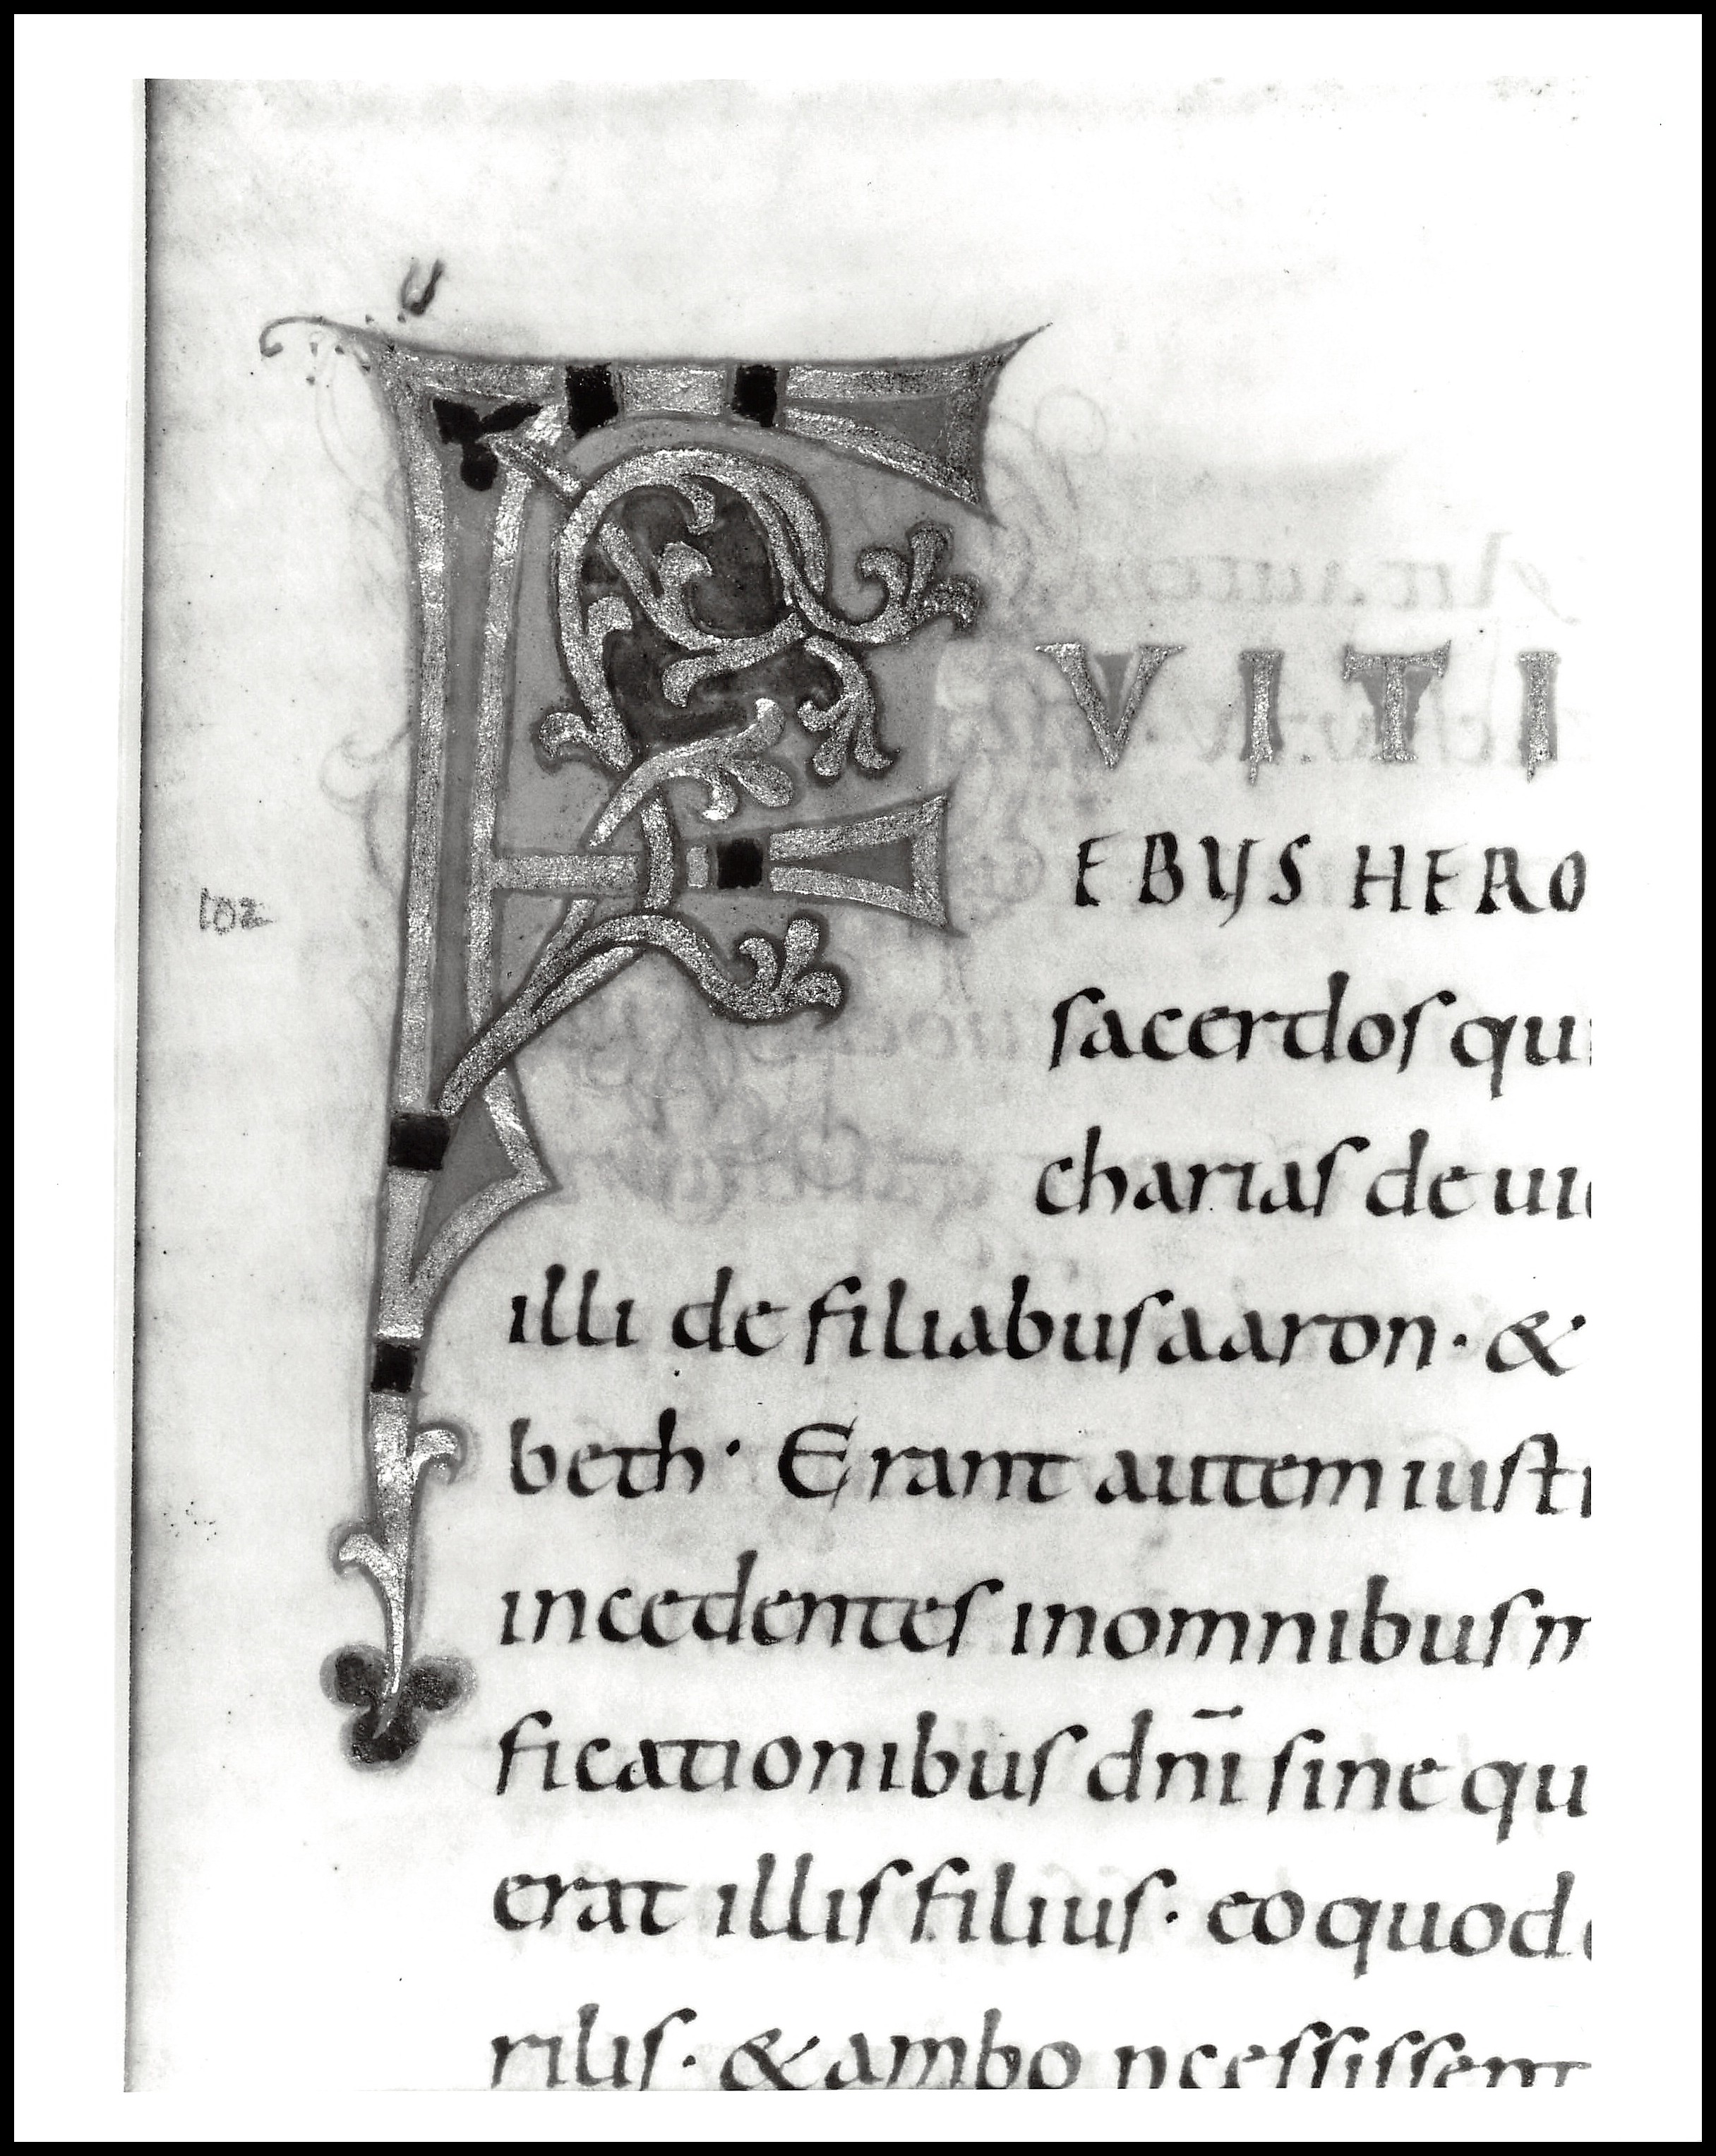 U
F
VITI
EBUS HERO
102
sacerdos qu
charias de ui
illi de filiabus aaron· &
beth· Erant autem iusti
incedentes in omnibus m
ficationibus dn̄i sine qu
erat illis filius· eo quod
rilis· & ambo